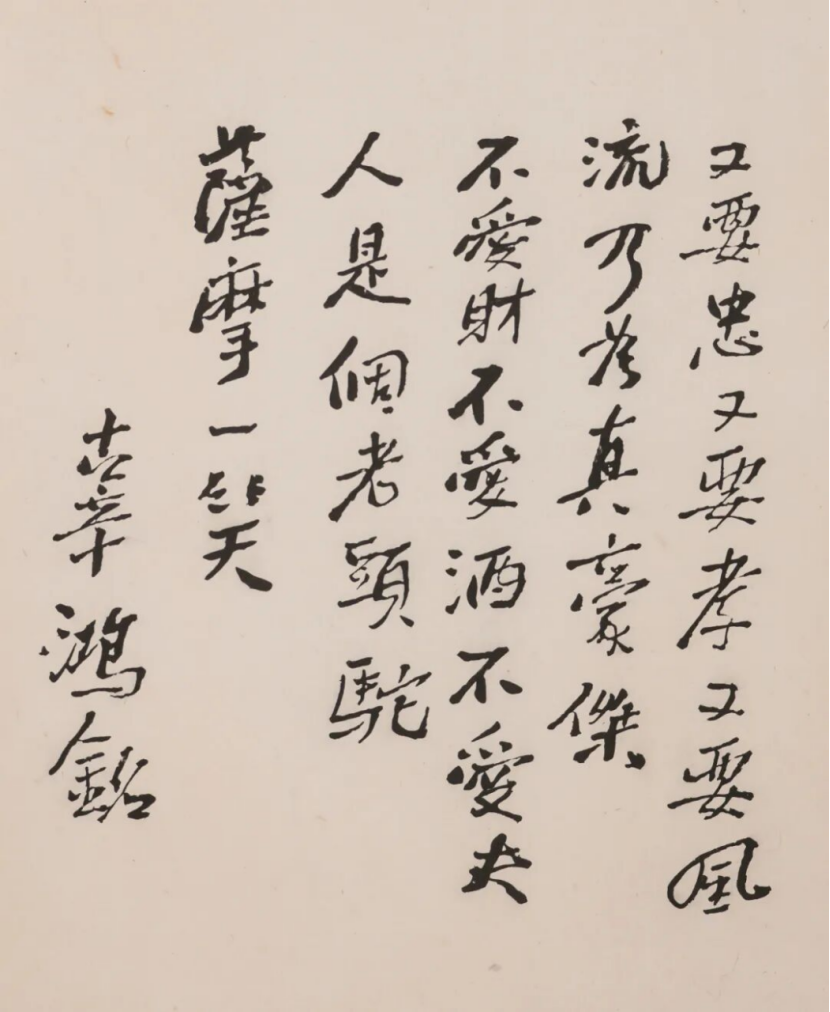 又要忠又要孝又要風
流乃為真豪傑
不愛財不愛酒不愛夫
人是個老頭駝
薩摩一笑
辜鴻銘